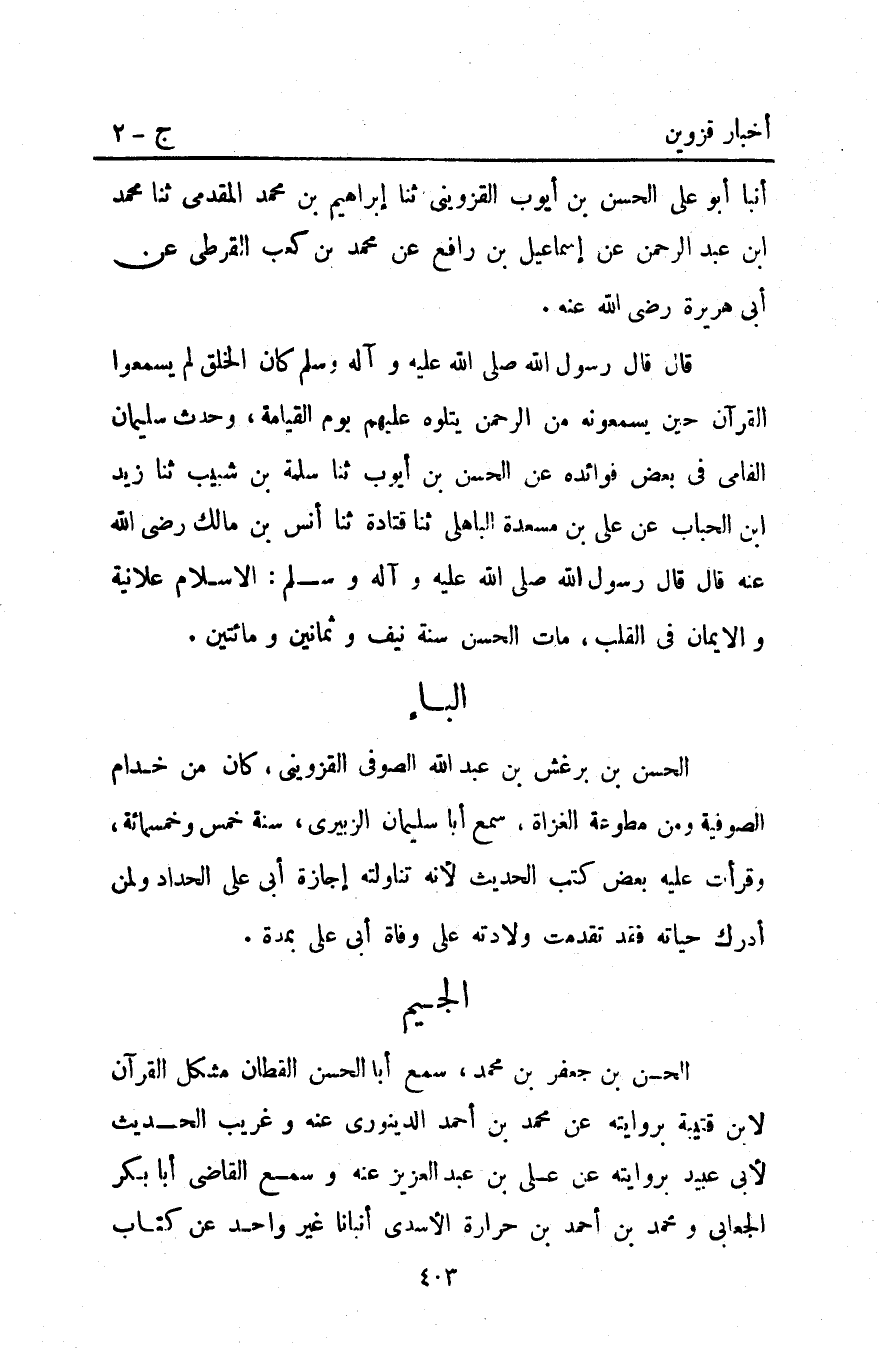 أخبار قزوين ج - ٢
أنبا أبو على الحسن بن أيوب القزوينى ثنا إبراهيم بن محمد المقدمى ثنا محمد
ابن عبد الرحمن عن إسماعيل بن رافع عن محمد بن كعب القرطى عن
أبى هريرة رضى الله عنه .
قال قال رسول الله صلى الله عليه و آله وسلم كان الخلق لم يسمعوا
القرآن حين يسمعونه من الرحمن يتلوه عليهم يوم القيامة ، وحدث سليمان
الفامى فى بعض فوائده عن الحسن بن أيوب ثنا سلمة بن شبيب ثنا زيد
ابن الحباب عن على بن مسعدة الباهلى ثنا قتادة ثنا أنس بن مالك رضى الله
عنه قال قال رسول الله صلى الله عليه و آله و سلم : الاسلام علانية
و الايمان فى القلب ، مات الحسن سنة نيف و ثمانين و مائتين .
الباء
الحسن بن برغش بن عبد الله الصوفى القزوينى ، كان من خدام
الصوفية ومن مطوعة الغزاة ، سمع أبا سليمان الزبيرى ، سنة خمس وخمسمائة ،
وقرأت عليه بعض كتب الحديث لأنه تناولته إجازة أبى على الحداد ولمن
أدرك حياته فقد تقدمت ولادته على وفاة أبى على بمدة .
الجيم
الحسن بن جعفر بن محمد ، سمع أبا الحسن القطان مشكل القرآن
لابن قتيبة بروايته عن محمد بن أحمد الدينورى عنه و غريب الحديث
لأبى عبيد بروايته عن على بن عبد العزيز عنه و سمع القاضى أبا بكر
الجعابى و محمد بن أحمد بن حرارة الأسدى أنبانا غير واحد عن كتاب
٤٠٣